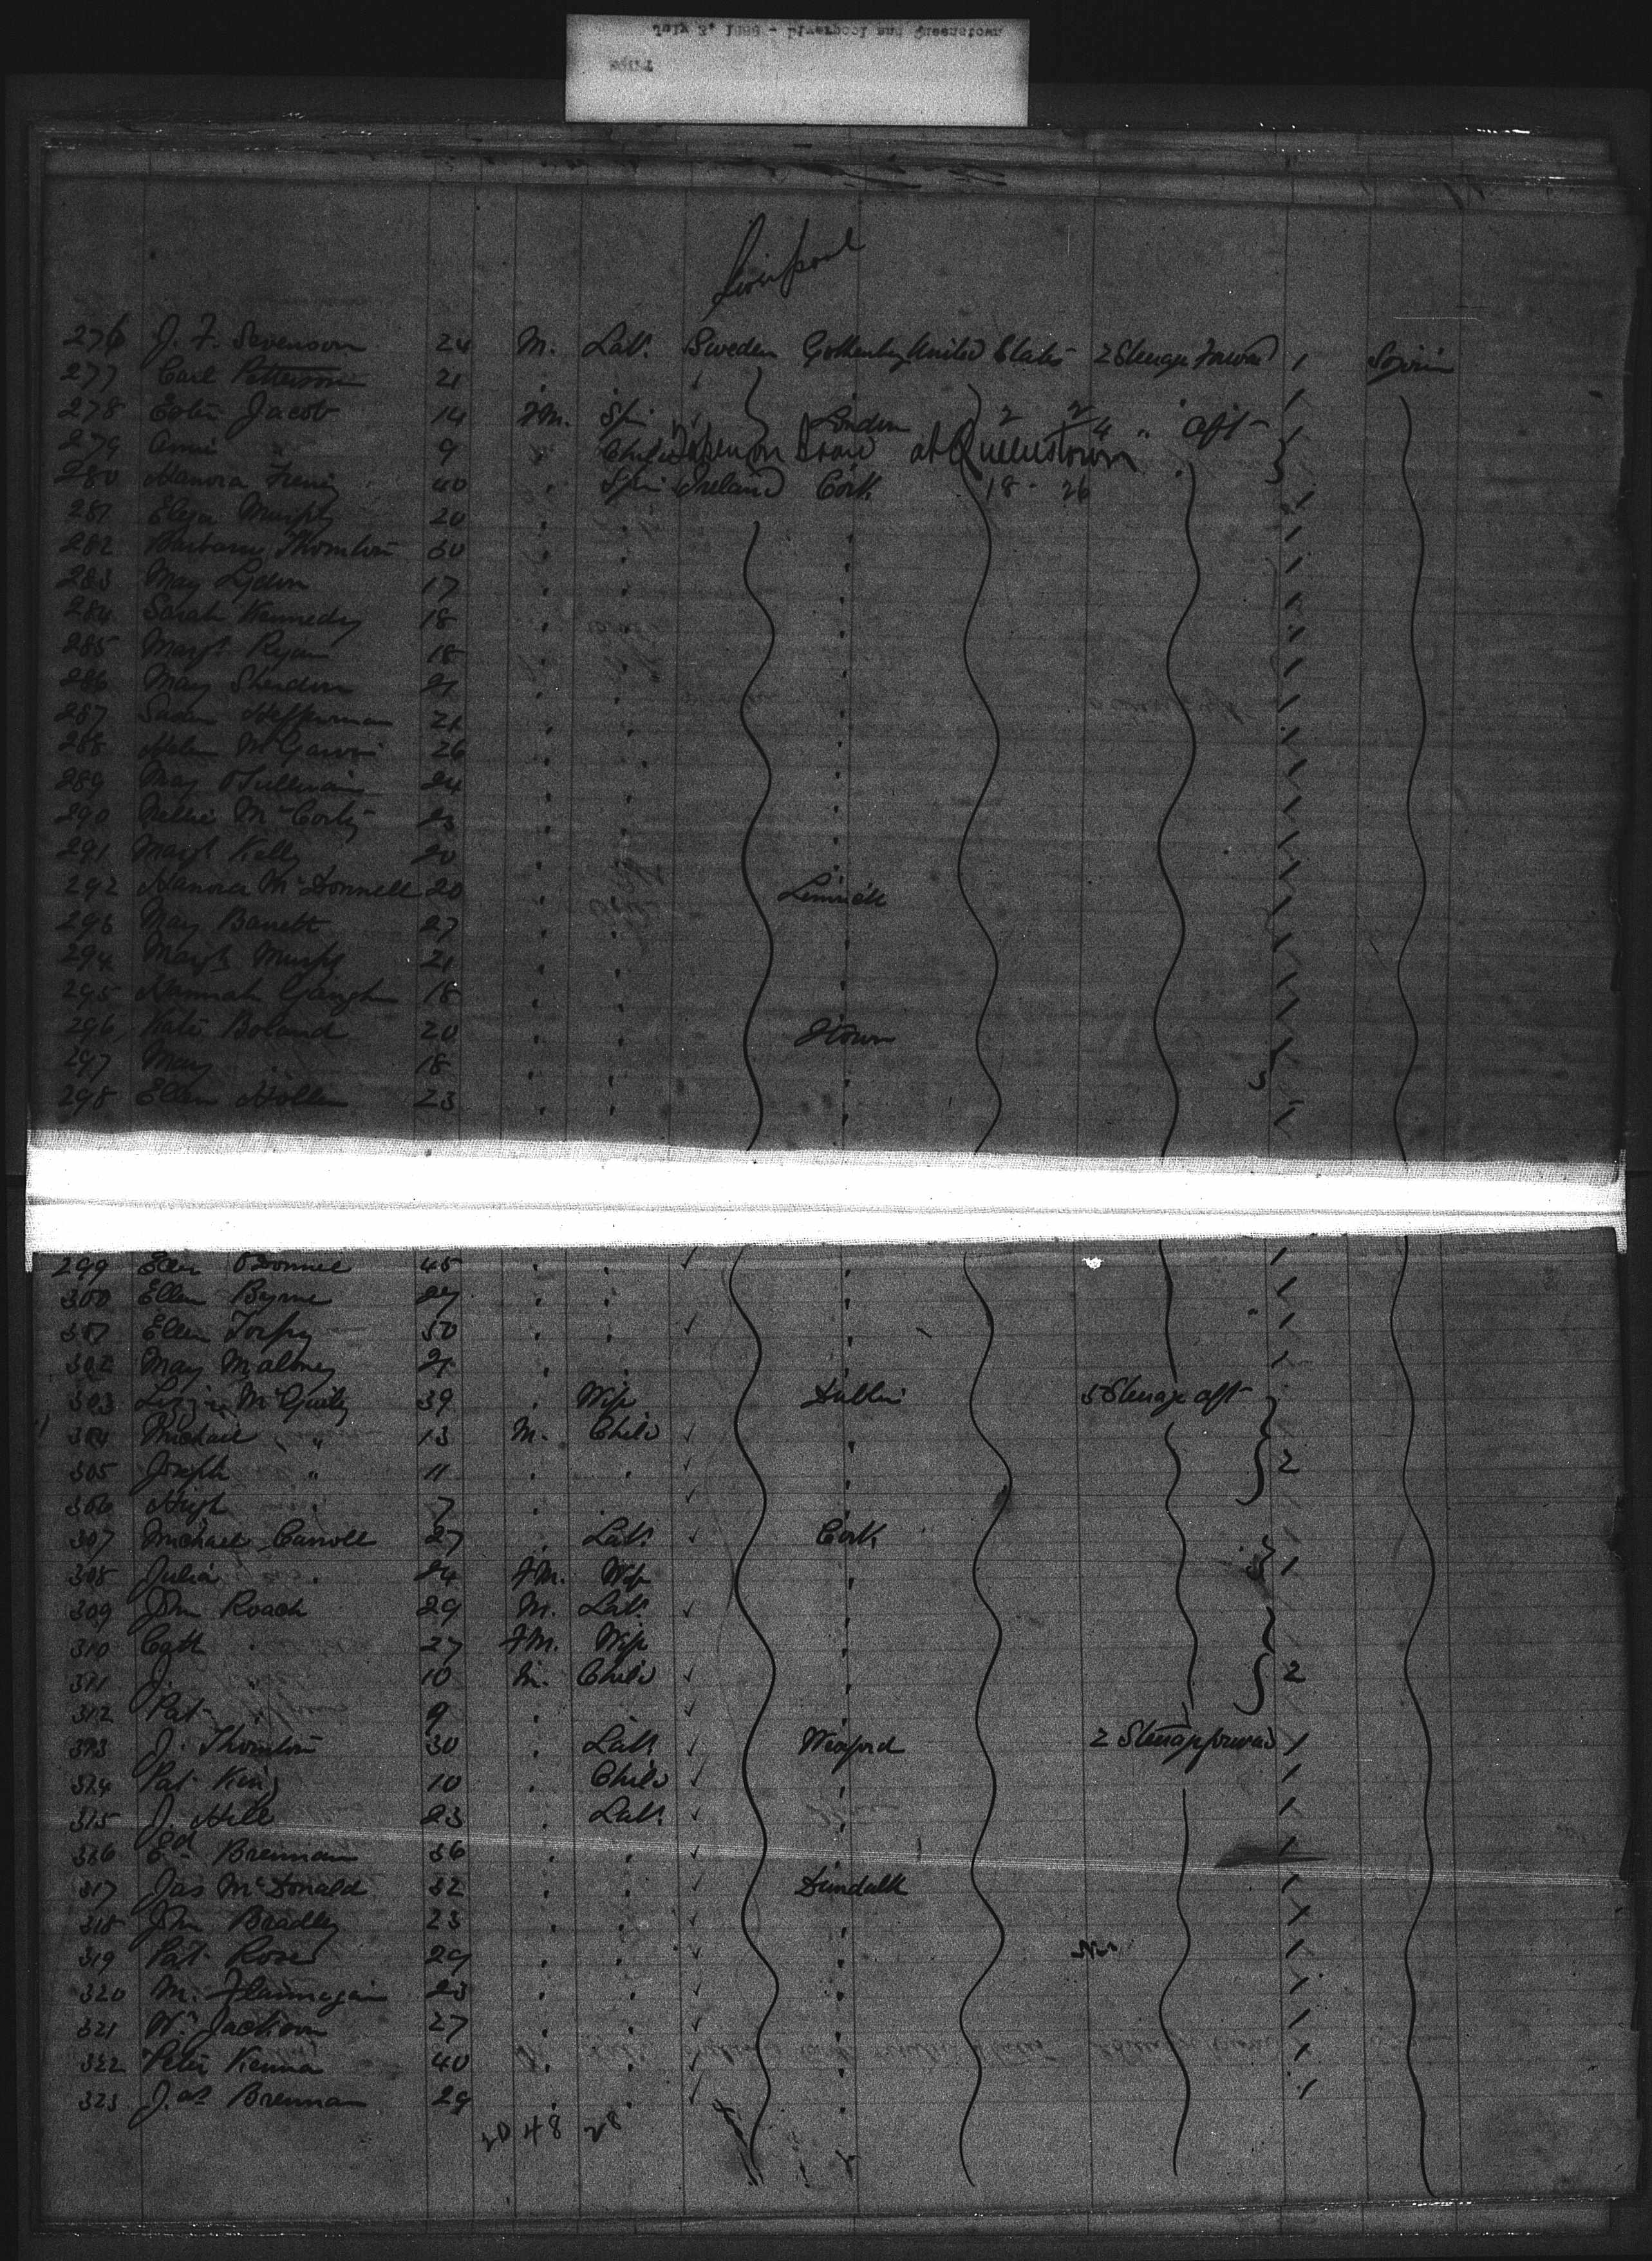 Liverpool
276 J. F. Sevenson 24 M. Lab. Sweden Gothenbg United States 2 Steerage Forward 1 Sojrin
277 Carl Petterson 21 " " 1
278 Jacob 14 FM. Spi London 2 2/4 " Aft 1
279 Annie " 9 " Child Taken on board at Queenstown
280 Hanora 40 " Spi Ireland Cork 18 - 26 1
281 Eliza Murphy 20 " " " 1
282 Barbara Thornton 60 " " " 1
283 May Lydon 17 " " " 1
284 Sarah Kennedy 18 " " " 1
285 Margt Ryan 18 " " " 1
286 May Sheridan 21 " " " 1
287 Susan Heffernan 21 " " " 1
288 Helen 26 " " " 1
289 May O'Sullivan 24 " " " 1
290 Nellie McCorty 23 " " " 1
291 Margt Kelly 20 " " " 1
292 Hanora McDonnell 20 " " Limrick 1
293 May Barrett 27 " " " 1
294 Margt Murphy 21 " " " 1
295 Hannah 18 " " " 1
296 Kate Boland 20 " " 1
297 May " 18 " " "
298 Ellen 23 " " " 1
299 O'Donnel 45 " " " 1
300 Ellen Byrne 27 " " " 1
301 Ellen Torpy 50 " " " 1
302 May Maloney 21 " " " 1
303 Lizzie 39 " Wife Dublin 5 Steerage aft
304 Michael " 13 M. Child "
305 Joseph " 11 " " " 2
306 Hugh " 7 " " "
307 Michael Carroll 27 " Lab. Cork
308 Julia " 24 FM. Wife " 1
309 John Roach 29 M. Lab. "
310 Cath " 27 FM. Wife "
311 J. " 10 M. Child " 2
312 Pat " 9 " " "
313 J. Thornton 30 " Lab. Wexford 2 Steerage forward 1
314 Pat King 10 " Child " 1
315 J. Hill 23 " Lab. " 1
316 Ed Brennan 36 " " " 1
317 Jas McDonald 32 " " Dundalk 1
318 John Bradley 23 " " " 1
319 Pat Rose 29 " " " 1
320 M. Flannagan 23 " " " 1
321 Wm Jackson 27 " " " 1
322 Peter Kenna 40 " " " 1
323 Jas Brennan 29 " " " 1
20 48 28